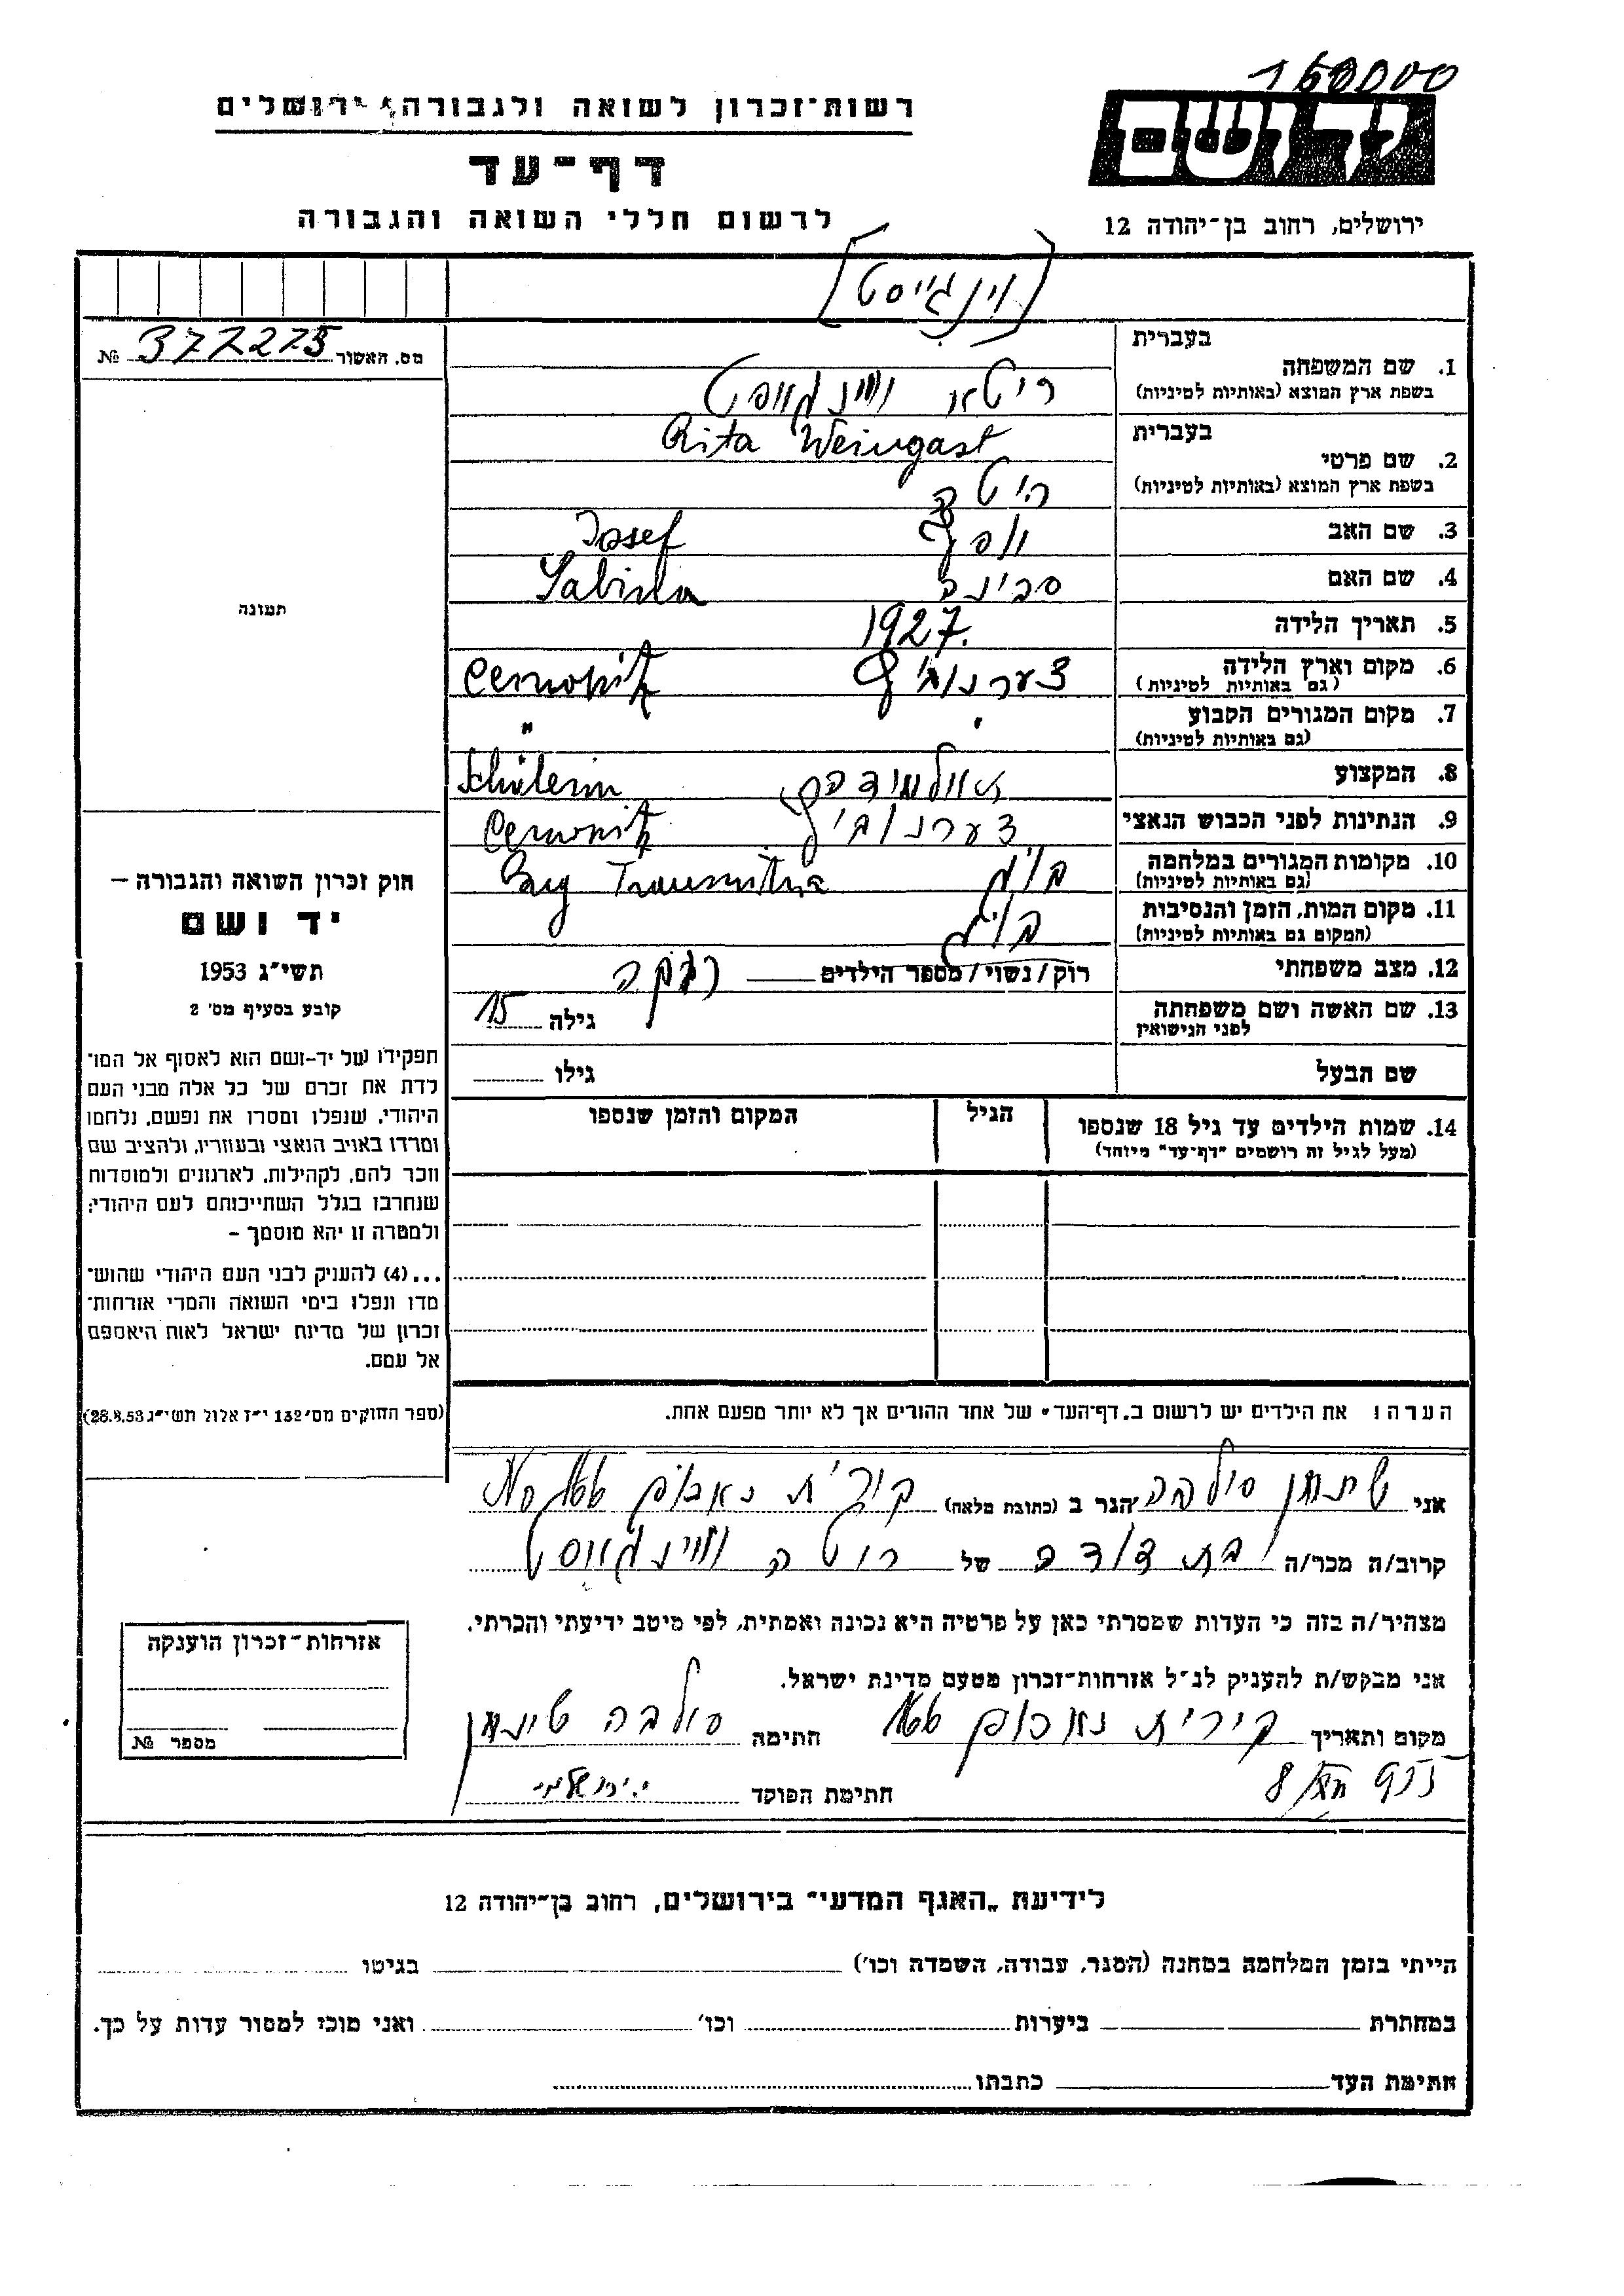 160000
רשות־זכרון לשואה ולגבורה, ירושלים
ידושם
דף־עד
לרשום חללי השואה והגבורה
ירושלים, רחוב בן־יהודה 12
[וינגייסט]
מס. האשור 377275 №
בעברית
1. שם המשפחה
בשפת ארץ המוצא (באותיות לטיניות)
ריטא
Rita Weingast
בעברית
2. שם פרטי
בשפת ארץ המוצא (באותיות לטיניות)
ריטה
3. שם האב יוסף Josef
4. שם האם סבינה Sabina
תמונה
5. תאריך הלידה 1927.
6. מקום וארץ הלידה צערנוביץ
(גם באותיות לטיניות)
7. מקום המגורים הקבוע " "
(גם באותיות לטיניות)
8. המקצוע Schülerin
9. הנתינות לפני הכבוש הנאצי צערנוביץ
10. מקומות המגורים במלחמה בוג Bug
(גם באותיות לטיניות)
11. מקום המות, הזמן והנסיבות בוג
(המקום גם באותיות לטיניות)
12. מצב משפחתי רוק/נשוי/מספר הילדים רווקה
13. שם האשה ושם משפחתה
לפני הנישואין
גילה 15
שם הבעל גילו
חוק זכרון השואה והגבורה –
יד ושם
תשי"ג 1953
קובע בסעיף מס' 2
תפקידו של יד-ושם הוא לאסוף אל המו־
לדת את זכרם של כל אלה מבני העם
היהודי, שנפלו ומסרו את נפשם, נלחמו
ומרדו באויב הנאצי ובעוזריו, ולהציב שם
וזכר להם, לקהילות, לארגונים ולמוסדות
שנחרבו בגלל השתייכותם לעם היהודי;
ולמטרה זו יהא מוסמך –
...(4) להעניק לבני העם היהודי שהוש־
מדו ונפלו בימי השואה והמרי אזרחות־
זכרון של מדינת ישראל לאות היאספם
אל עמם.
(ספר החוקים מס' 132 י"ז אלול תשי"ג 28.8.53)
14. שמות הילדים עד גיל 18 שנספו
(מעל לגיל זה רושמים "דף־עד" מיוחד)
הגיל
המקום והזמן שנספו
הערה: את הילדים יש לרשום ב"דף־העד" של אחד ההורים אך לא יותר מפעם אחת.
אני סולבה הגר ב (כתובת מלאה) קרית נאכום
קרוב/ה מכר/ה בת דודה של ריטה ווינגאסט
מצהיר/ה בזה כי העדות שמסרתי כאן על פרטיה היא נכונה ואמתית, לפי מיטב ידיעתי והכרתי.
אני מבקש/ת להעניק לנ"ל אזרחות־זכרון מטעם מדינת ישראל.
מקום ותאריך קירית נאכום חתימה סולבה
חתימת הפוקד
אזרחות־זכרון הוענקה
מספר №
לידיעת "האגף המדעי" בירושלים, רחוב בן־יהודה 12
הייתי בזמן המלחמה במחנה (הסגר, עבודה, השמדה וכו') בגיטו
במחתרת ביערות וכו' ואני מוכן למסור עדות על כך.
חתימת העד כתבתו